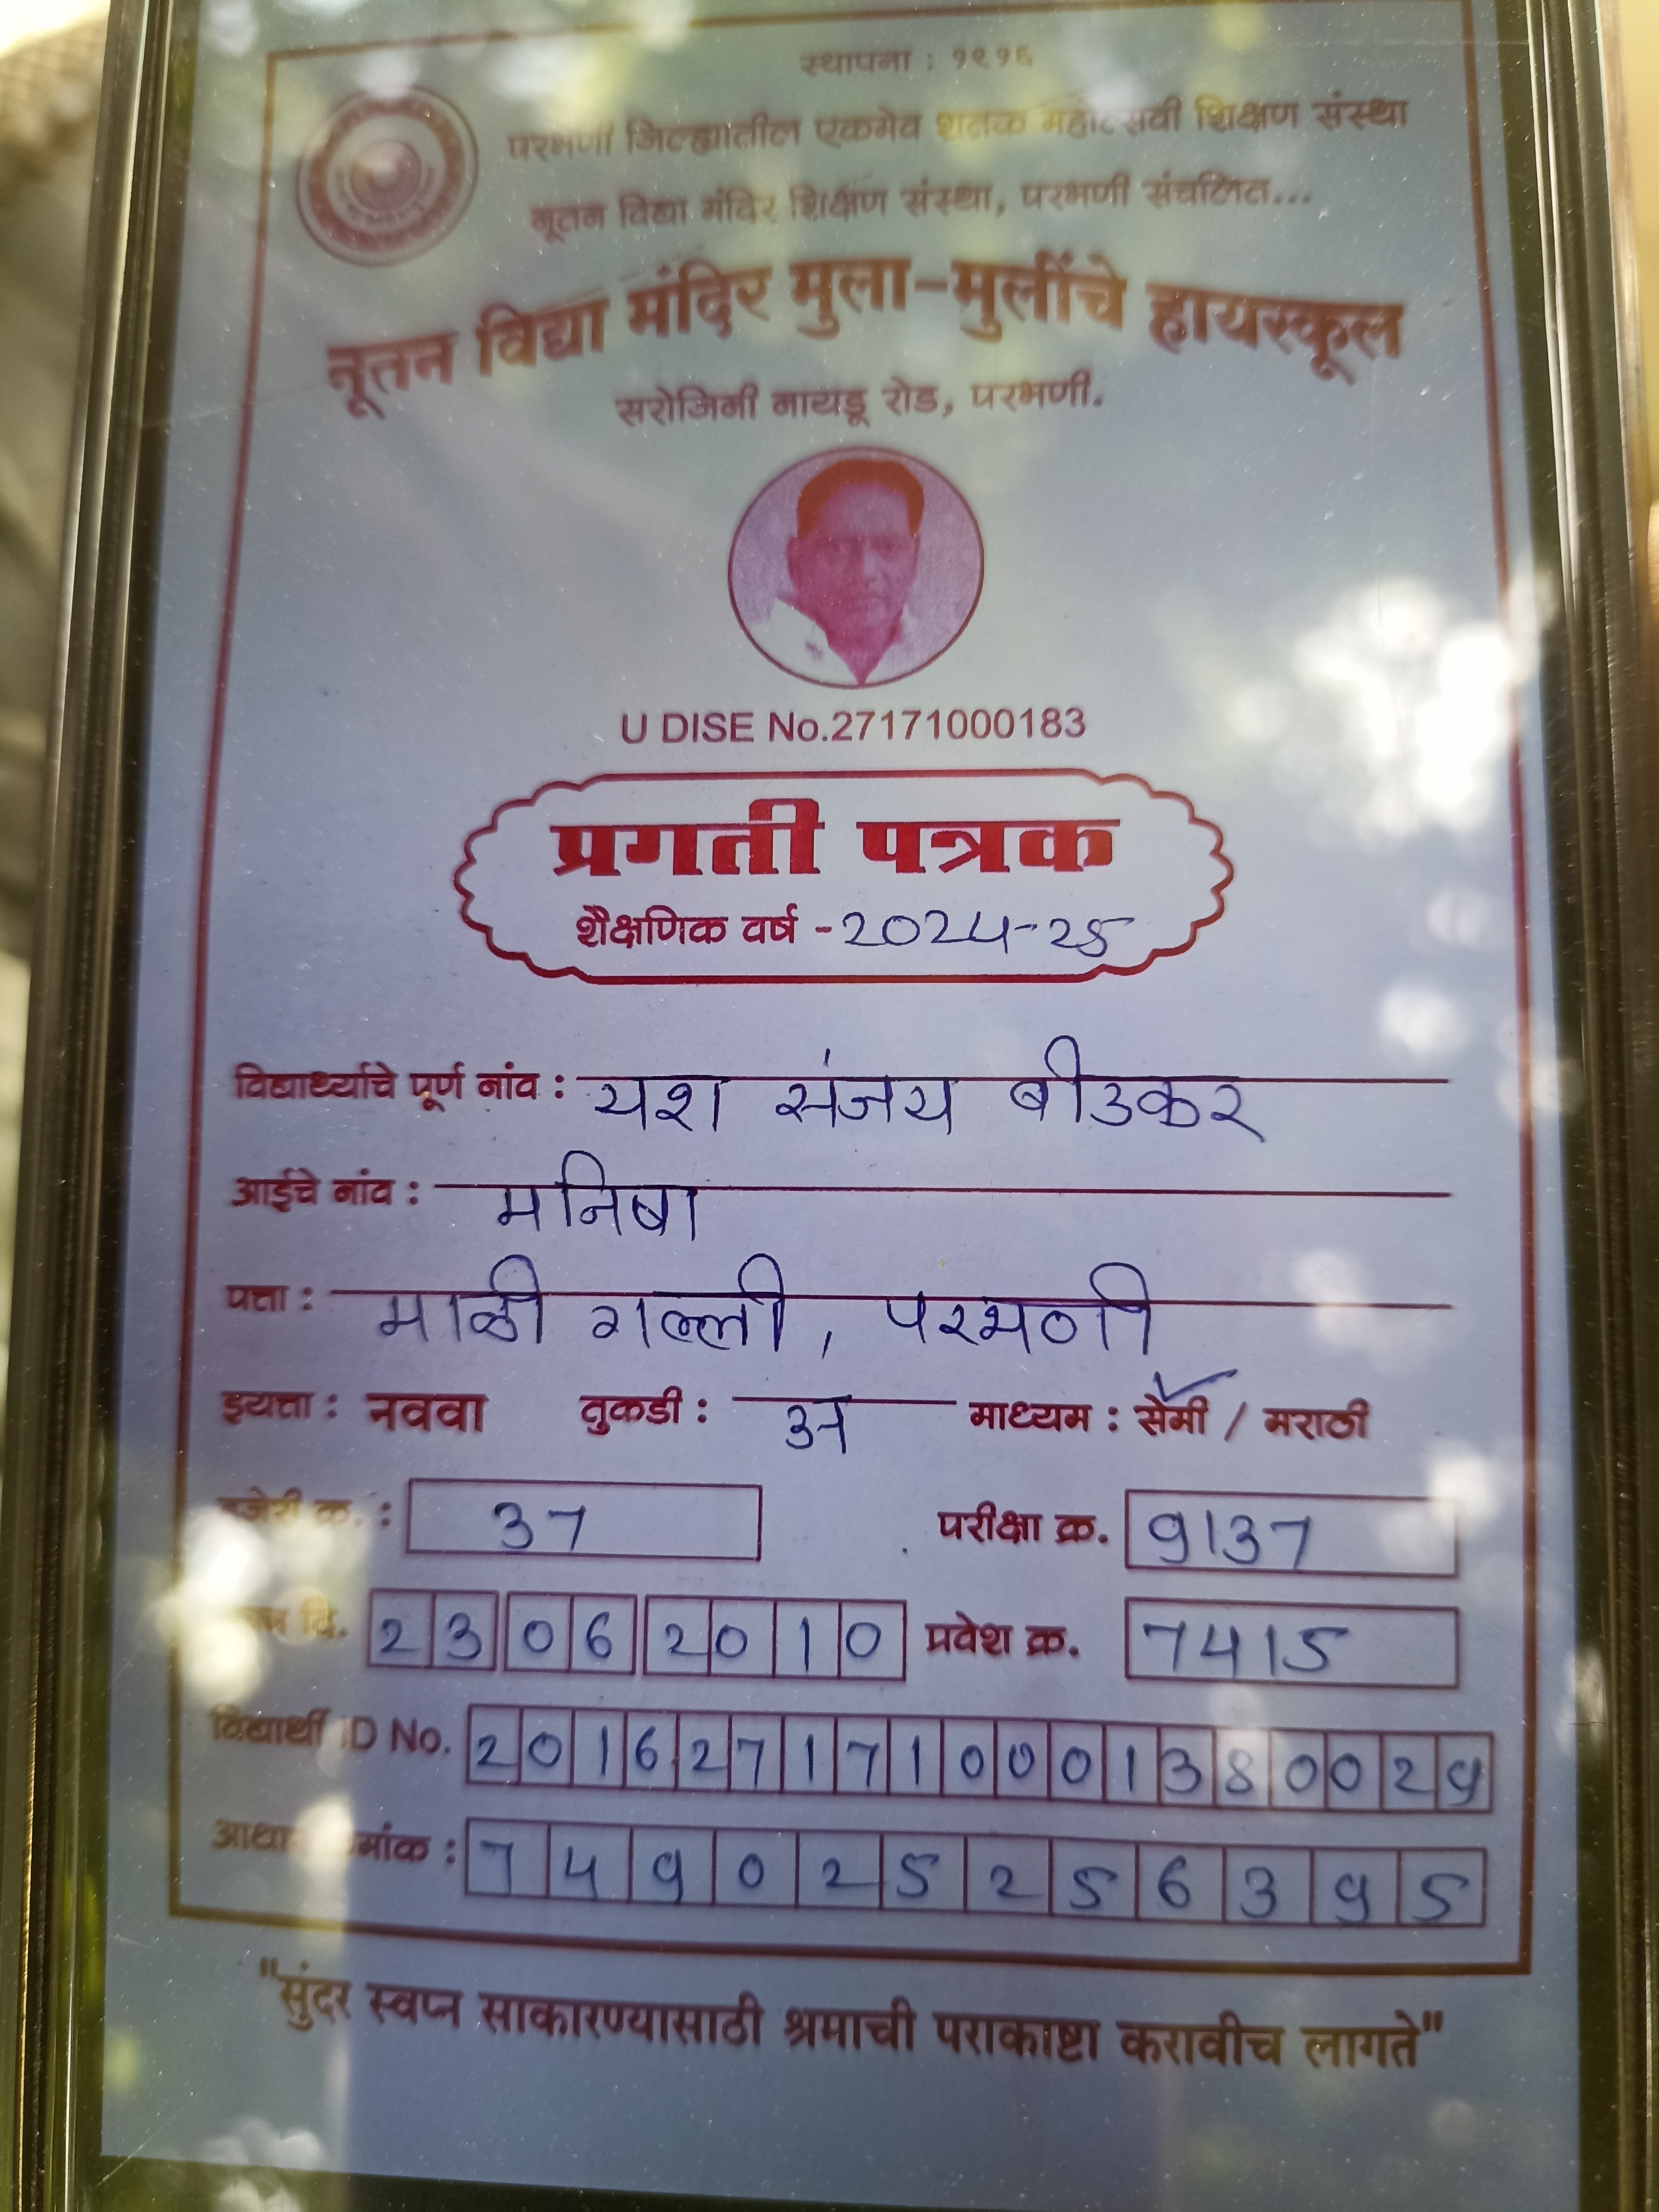 स्थापना : १९१६
परभणी जिल्ह्यातील एकमेव शतक महोत्सवी शिक्षण संस्था
नूतन विद्या मंदिर शिक्षण संस्था, परभणी संचलित...
नूतन विद्या मंदिर मुला-मुलींचे हायस्कूल
सरोजिनी नायडू रोड, परभणी.
U DISE No.27171000183
प्रगती पत्रक
शैक्षणिक वर्ष - 2024-25
विद्यार्थ्याचे पूर्ण नांव : यश संजय बीडकर
आईचे नांव : मनिषा
पत्ता : माळी गल्ली, परभणी
इयत्ता : नववा तुकडी : अ माध्यम : सेमी / मराठी
हजेरी क्र. : 37 परीक्षा क्र. 9137
दि. 23 06 2010 प्रवेश क्र. 7415
विद्यार्थी ID No. 2016271710001380029
आधार क्रमांक : 749025256395
"सुंदर स्वप्न साकारण्यासाठी श्रमाची पराकाष्टा करावीच लागते"